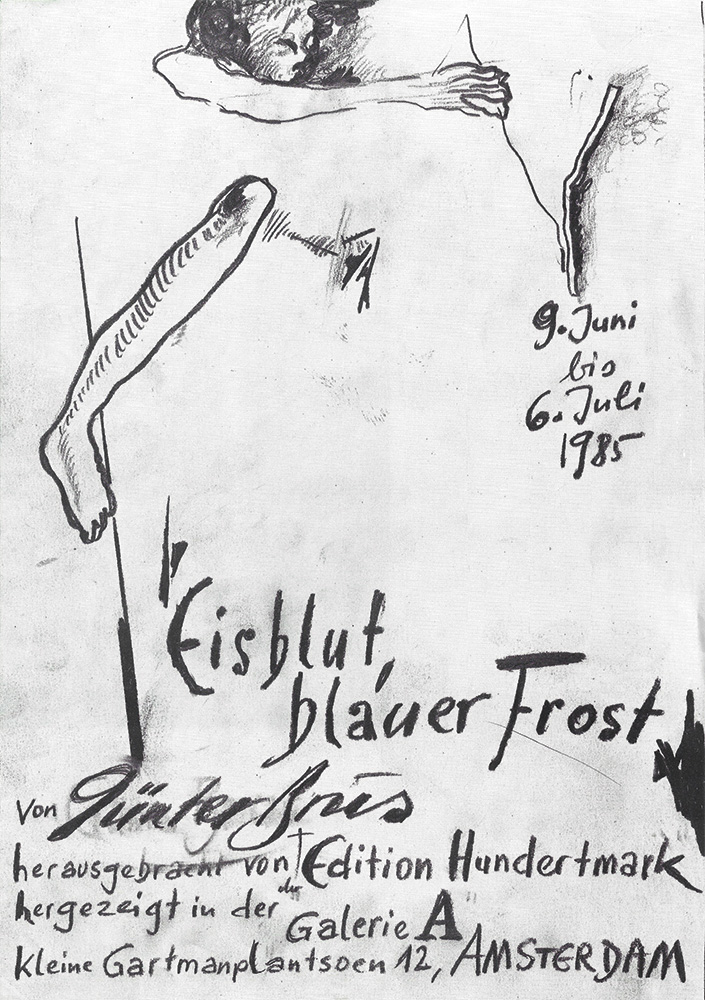 9. Juni
bis
6. Juli
1985
Eisblut,
blauer Frost
von Günter Brus
herausgebracht von der Edition Hundertmark
hergezeigt in der Galerie A
kleine Gartmanplantsoen 12, AMSTERDAM